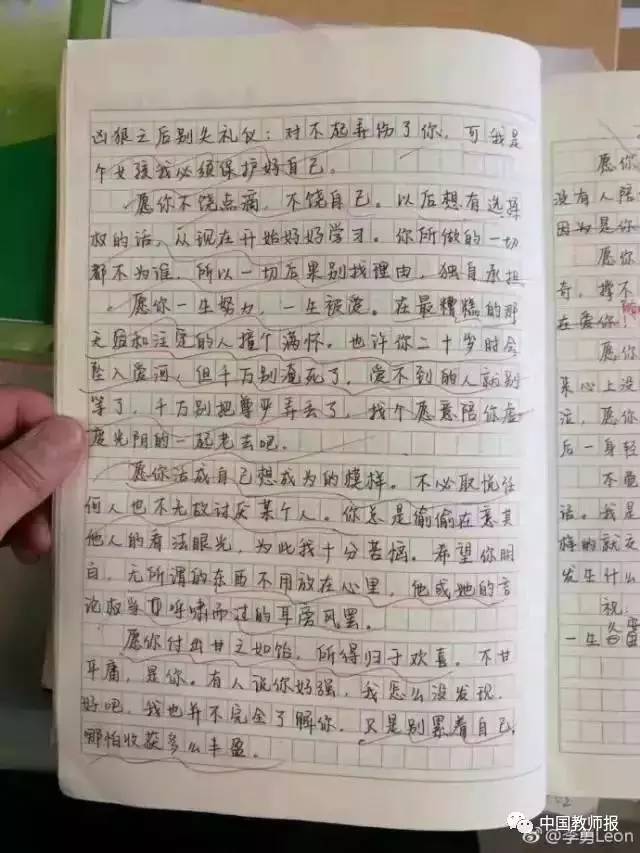 凶狠之后别失礼仪：对不起弄伤了你，可我是
个女孩我必须保护好自己。
愿你不饶点病，不饶自己。以后想有选择
权的话，从现在开始好好学习。你所做的一切
都不为谁，所以一切后果别找理由，独自承担
愿你一生努力，一生被爱。在最糟糕的那
天跟和注定的人撞个满怀。也许你二十岁时会
坠入爱河，但千万别淹死了，爱不到的人就别
等了，千万别把尊严弄丢了，找个愿意陪你虚
度光阴的一起老去吧。
愿你活成自己想成为的模样。不必取悦任
何人也不无故讨厌某个人。你总是偷偷在意其
他人的看法眼光，为此我十分苦恼。希望你明
白，无所谓的东西不用放在心里，他或她的言
论权当呼啸而过的耳旁风罢。
愿你付出甘之如饴，所得归于欢喜。不甘
平庸，是你。有人说你好强，我怎么没发现，
好吧，我也并不完全了解你，只是别累着自己，
哪怕收获多么丰盈。
愿你
没有人陪
因为是你
愿你
奇，撑不
在爱你！
愿你
来心上没
泣，愿你
后一身轻
不电
话。我是
族的就交
发生什么
祝：
一生
中国教师报
@李勇Leon